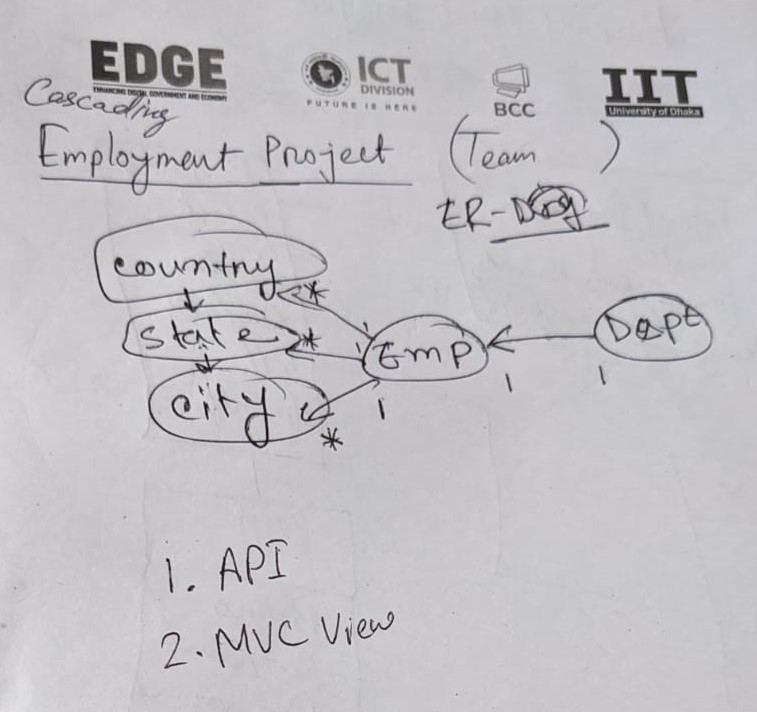 EDGE
ENHANCING DIGITAL GOVERNMENT AND ECONOMY
ICT
DIVISION
FUTURE IS HERE
BCC
IIT
University of Dhaka
Cascading
Employment Project (Team )
ER-
Country
*
State *
Emp
Dept
City
*
1
1
1
1. API
2. MVC View